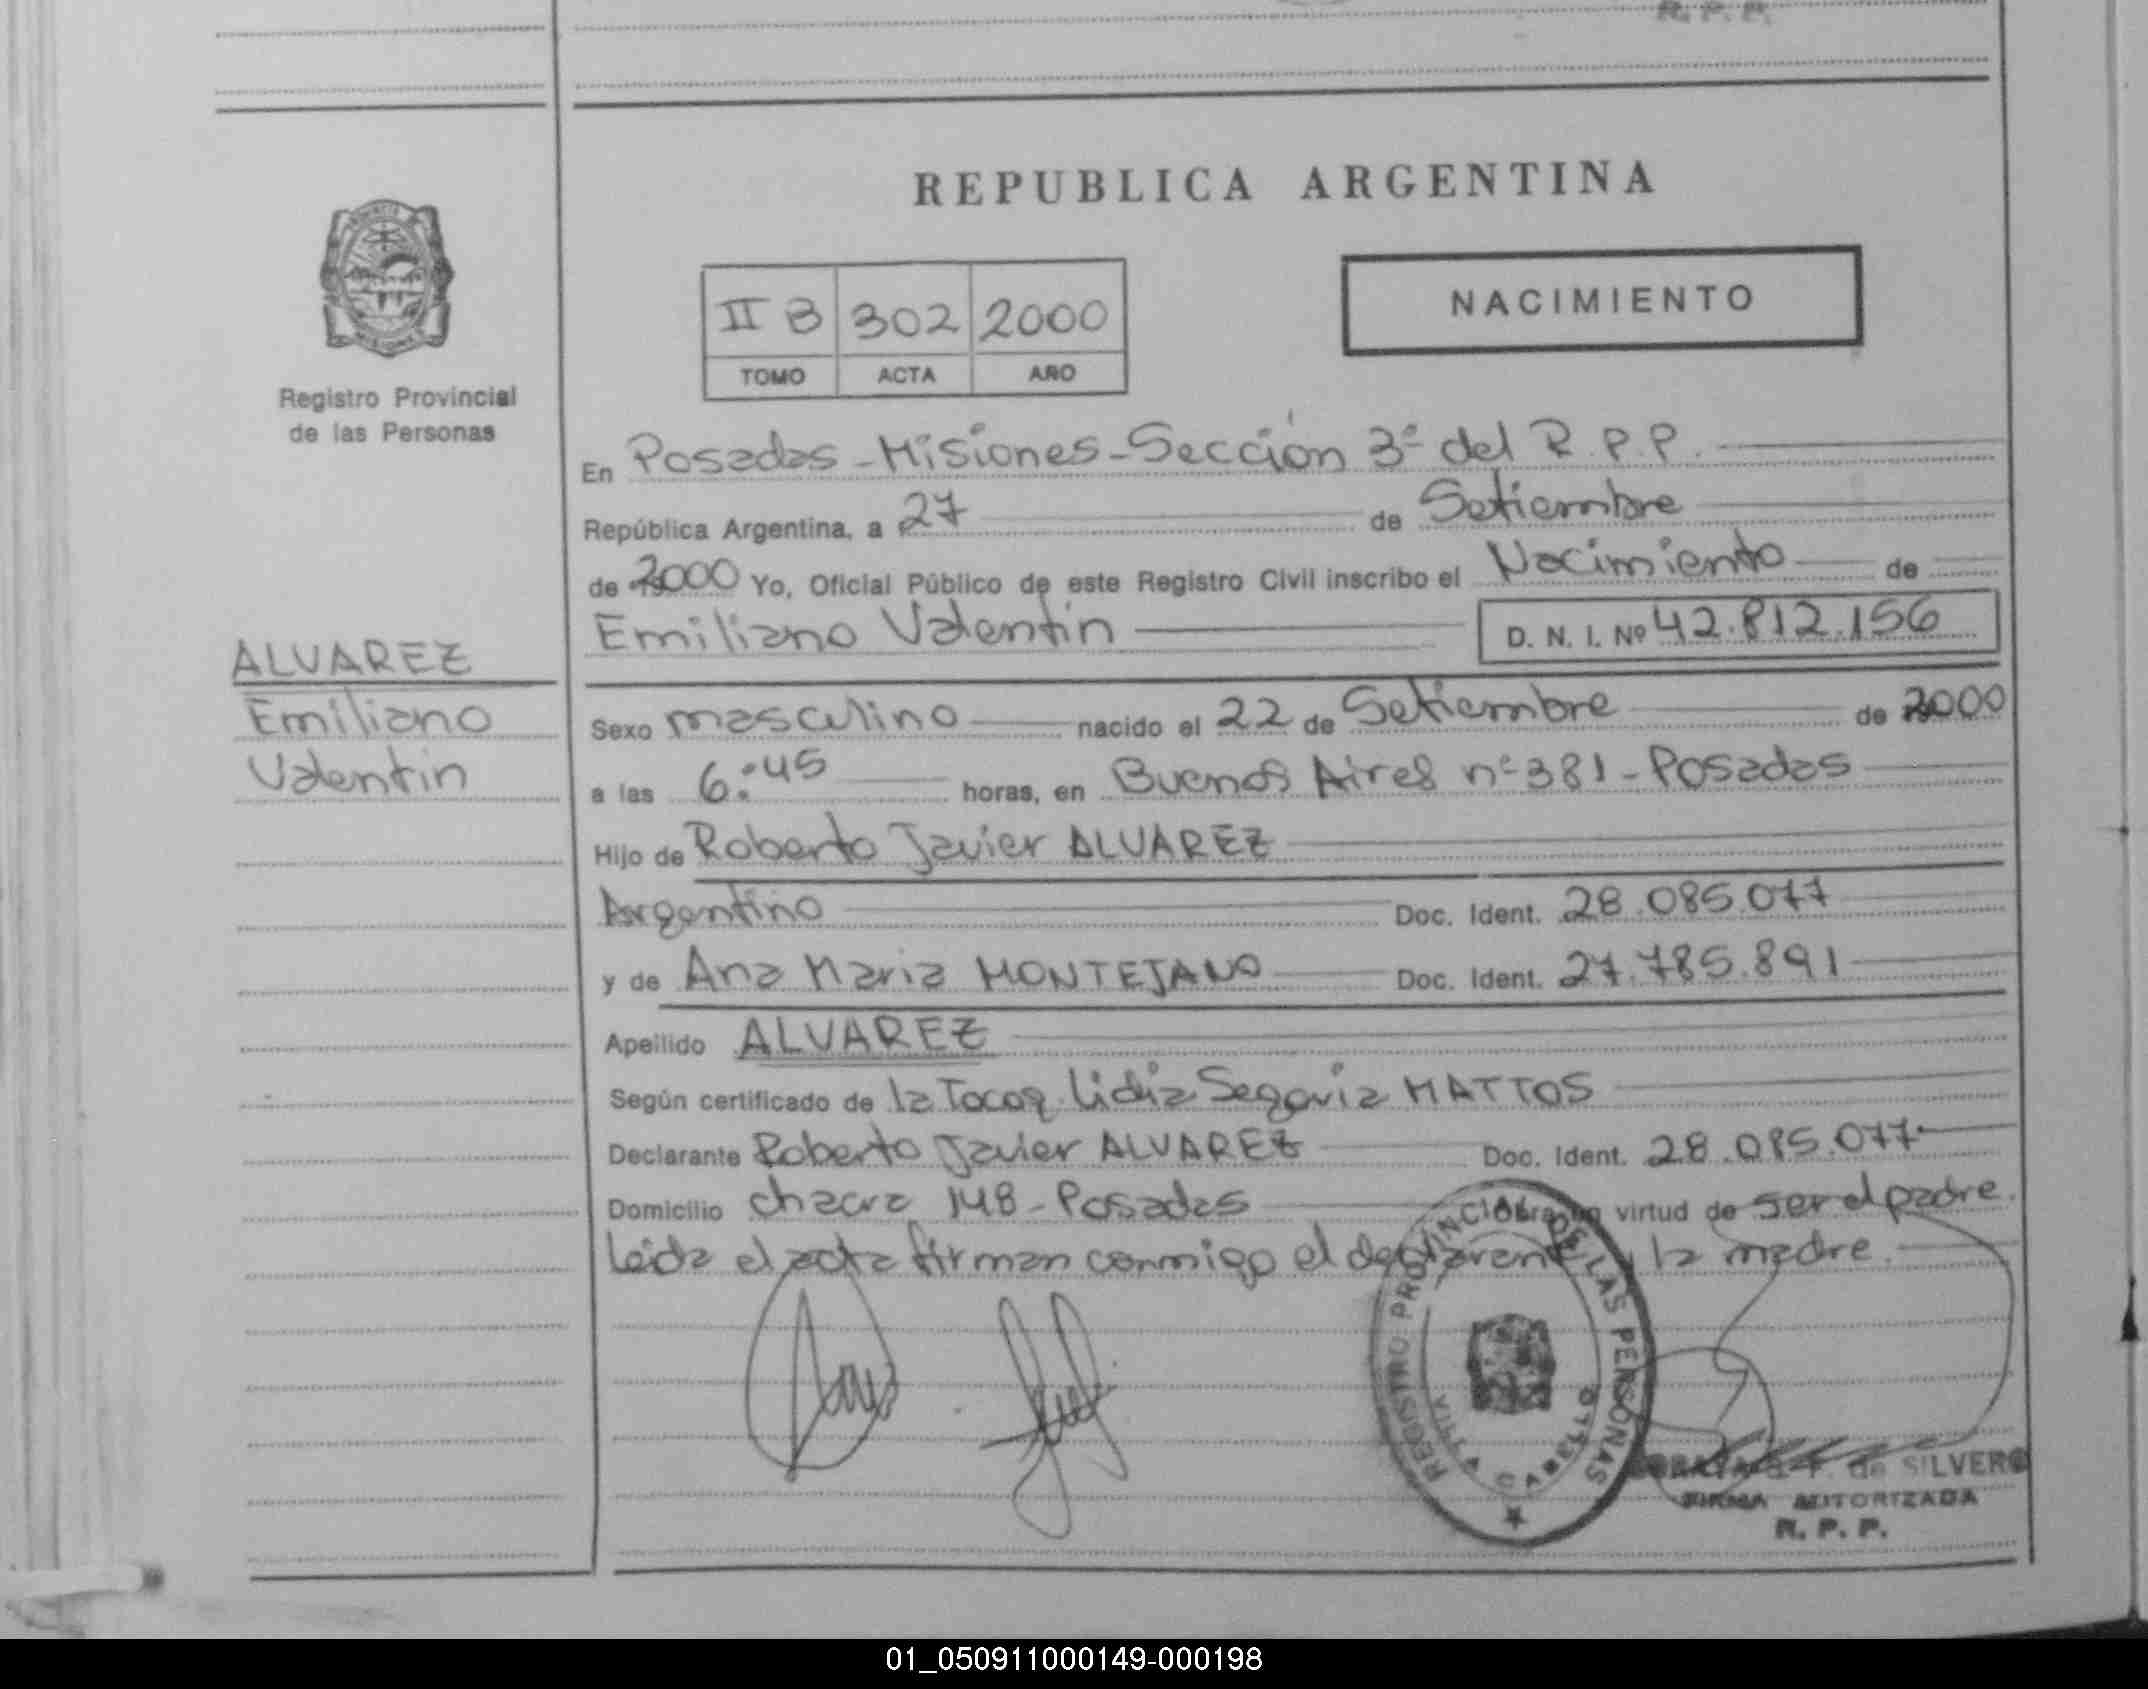 R. P. P.
REPUBLICA ARGENTINA
NACIMIENTO
II B 302 2000
TOMO ACTA AÑO
Registro Provincial
de las Personas
En Posadas - Misiones - Sección 3ª del R. P. P.
República Argentina, a 27 de Setiembre
de 2000 Yo, Oficial Público de este Registro Civil inscribo el Nacimiento de
Emiliano Valentín D. N. I. Nº 42.812.156
ALVAREZ
Emiliano
Valentín
Sexo masculino nacido el 22 de Setiembre de 2000
a las 6:45 horas, en Buenos Aires nº 381 - Posadas
Hijo de Roberto Javier ALVAREZ
Argentino Doc. Ident. 28.085.077
y de Ana Maria MONTEJANO Doc. Ident. 27.785.891
Apellido ALVAREZ
Según certificado de la Tocog. Lidia Segovia MATTOS
Declarante Roberto Javier ALVAREZ Doc. Ident. 28.085.077
Domicilio chacra 148 - Posadas Obra en virtud de ser el padre.
Leida el acta firman conmigo el declarante y la madre.
REGISTRO PROVINCIAL DE LAS PERSONAS
de SILVERO
FIRMA AUTORIZADA
R. P. P.
01_050911000149-000198